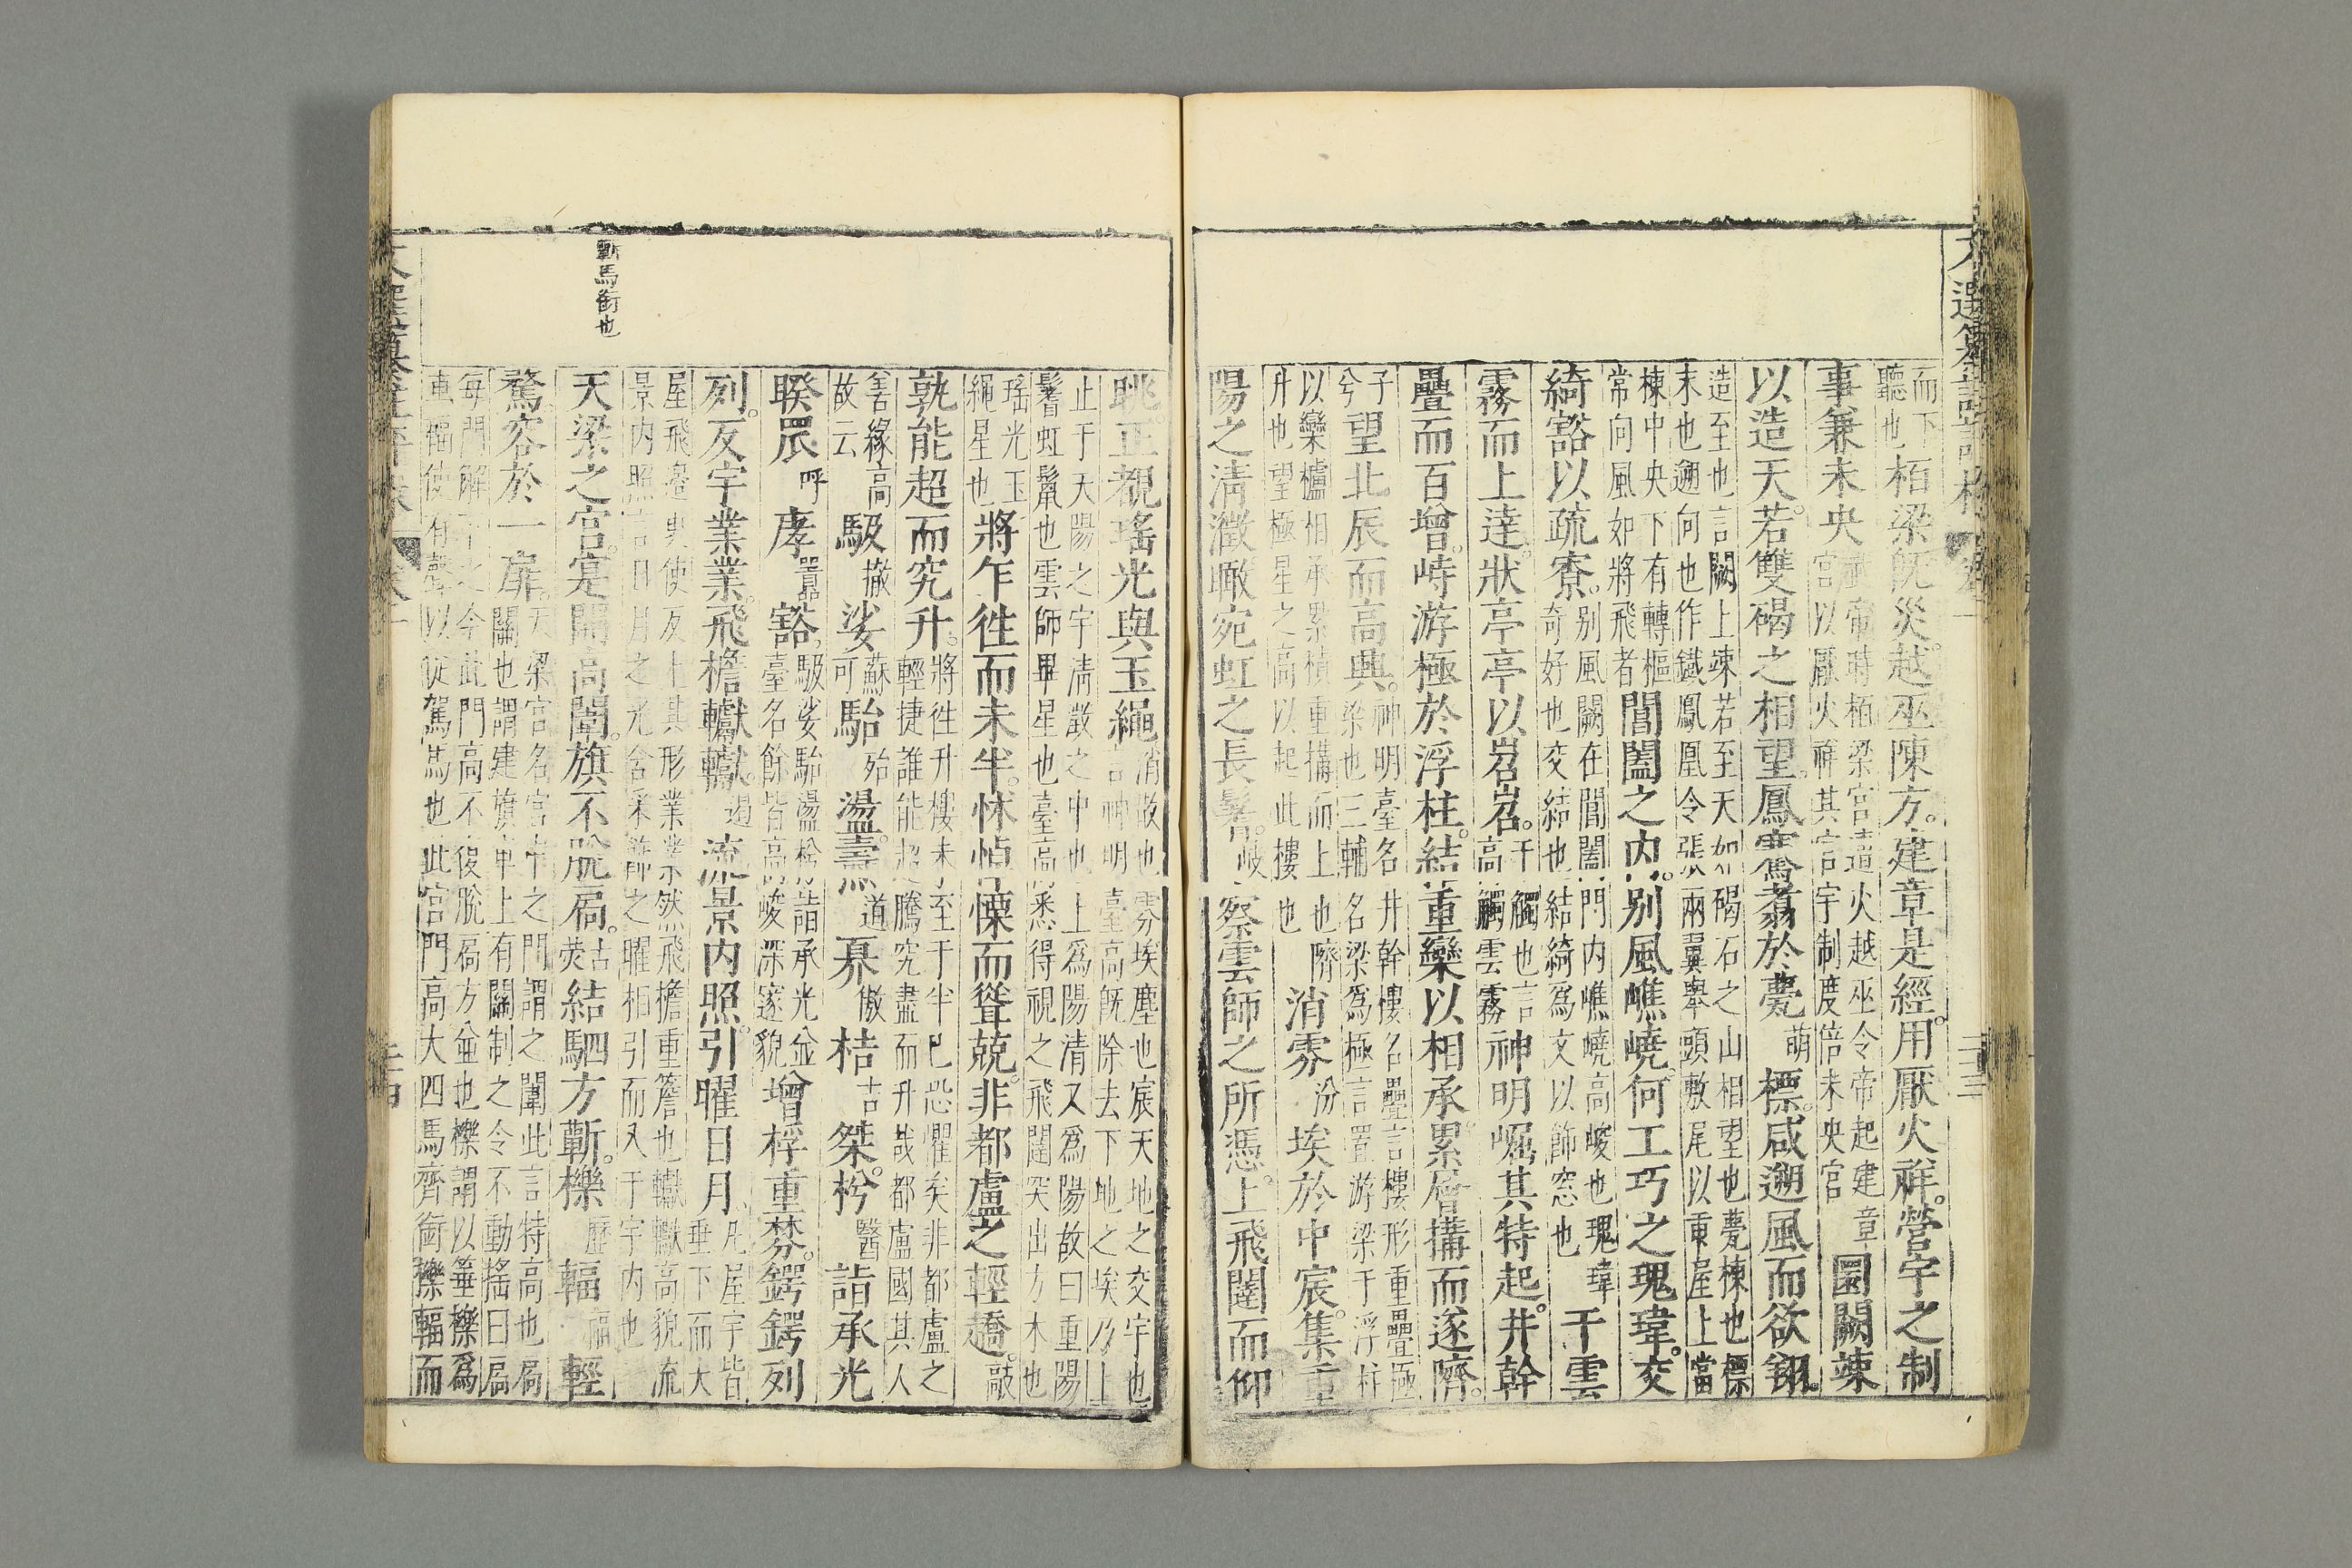 文選纂註評林
卷一
二十三
而下
聽也
柏梁旣災。越巫陳方。建章是經。用厭火祥。營宇之制
事兼未央
武帝時柏梁宮遭火越巫令帝起建章
宮以厭火祥其宮宇制度倍未央宮
圜闕竦
以造天。若雙碣之相望。鳳騫翥於甍萌標。咸遡風而欲翔。
造至也言闕上竦若至天如碣石之山相望也甍棟也標
末也遡向也作鐵鳳凰令張兩翼舉頭敷尾以東屋上當
棟中央下有轉樞
常向風如將飛者
閶闔之内。别風嶕嶢。何工巧之瑰瑋。交
綺豁以疏寮。
别風闕在閶闔門内嶕嶢高峻也瑰瑋
奇好也交結也結綺爲文以飾窓也
干雲
霧而上達。狀亭亭以岧岧。
干觸也言
高觸雲霧
神明崛其特起。井幹
疊而百增。峙游極於浮柱。結重欒以相承。累層構而遂隮。
子
兮
望北辰而高興。
神明臺名井幹樓名疊言樓形重疊極
梁也三輔名梁爲極言置游梁于浮柱
以欒櫨相承累積重構而上也隮
升也望極星之高以起此樓也
消雰汾埃於中宸。集重
陽之清澂瞰宛虹之長鬐。岐察雲師之所憑。上飛闥而仰
眺。正視瑤光與玉繩
消散也雰埃塵也宸天地之交宇也
言神明臺高旣除去下地之埃乃上
止于天陽之宇清澂之中也上爲陽清又爲陽故曰重陽
鬐虹鬣也雲師畢星也臺高悉得視之飛闥突出方木也
瑤光玉
繩星也
將乍徃而未半。怵悼慄而聳兢。非都盧之輕趫。
孰能超而究升。
將徃升樓未至于半已恐懼矣非都盧之
輕捷誰能超騰究盡而升哉都盧國其人
善緣高
故云
馺撤娑
蘇
可
駘殆盪。燾道奡傲桔吉桀。枍醫詣承光
睽罛呼庨囂豁。
馺娑駘盪枍詣承光並
臺名餘皆高峻深邃貌
增桴重棼。鍔鍔列
列。反宇業業。飛檐𨏦𨏦。遏流景内照。引曜日月。
凡屋宇皆
垂下而大
屋飛邉更使反上其形業業然飛檐重簷也𨏦𨏦高貌流
景内照言日月之光含采飾之曜相引而又于宇内也
天梁之宮。寔開高闈。旗不脫扃。苦熒結駟方蘄。櫟歷輻福輕
騖。容於一扉。
天梁宮名宮中之門謂之闈此言特高也扃
關也謂建旗車上有關制之令不動搖曰扃
每門解下之今此門高不復脫扃方並也櫟謂以箠櫟爲
車輻使有聲以促駕馬也此宮門高大四馬齊銜櫟輻而
蘄馬銜也
卷一
二十四